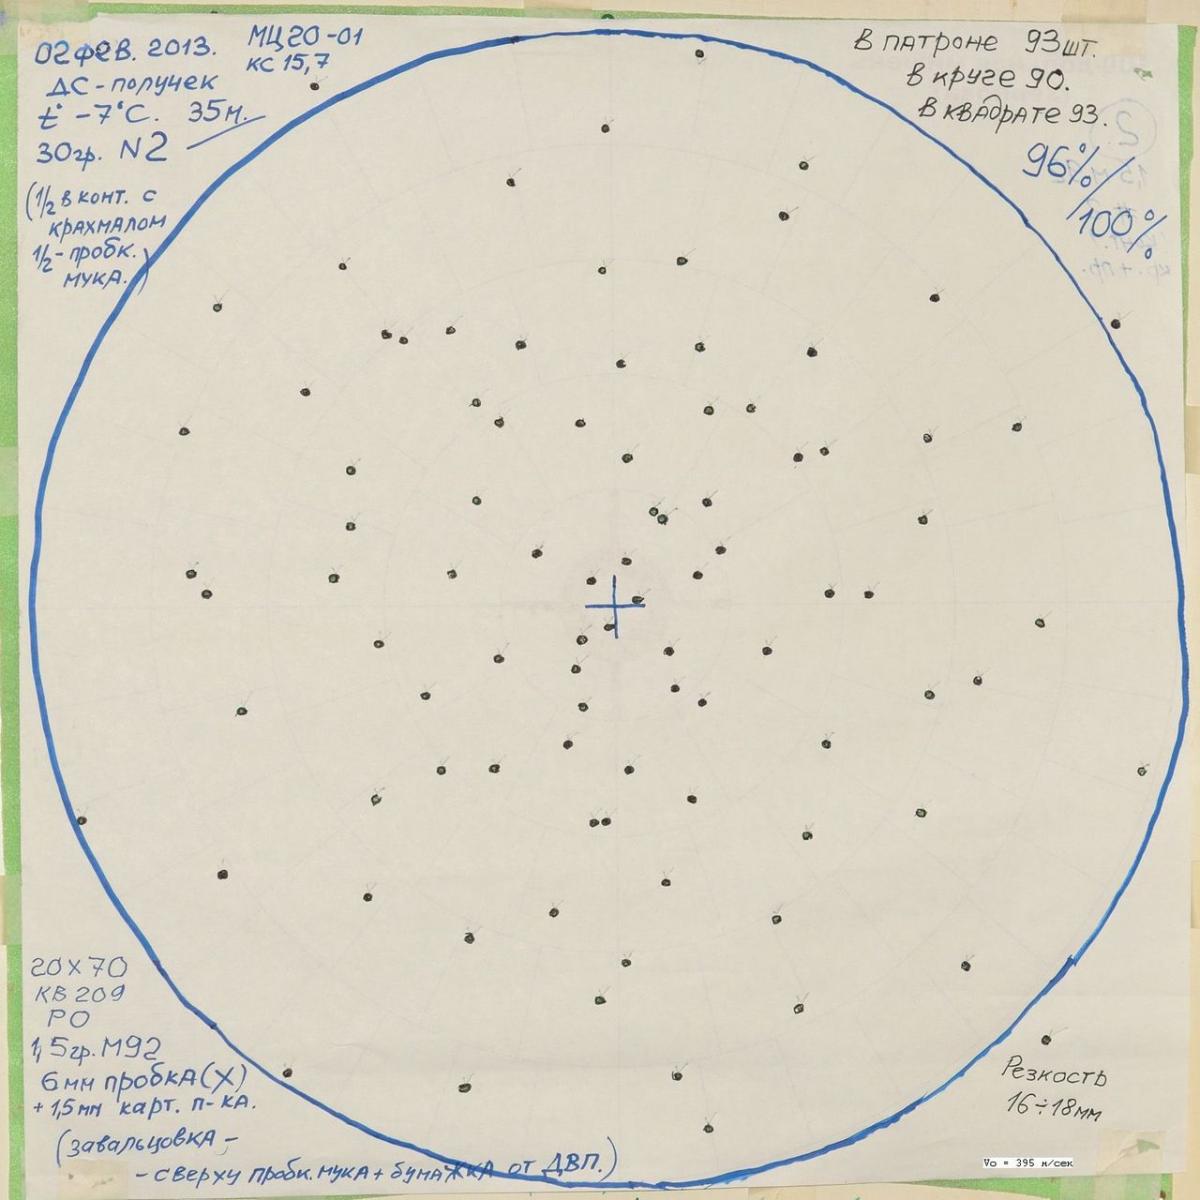 02 фев. 2013.
ДС-получек
t° -7°С. 35м.
30гр. N2
(1/2 в конт. с
крахмалом
1/2-пробк.
мука.)
МЦ20-01
кс 15,7
В патроне 93шт.
в круге 90.
в квадрате 93.
96%/
/100%
20х70
КВ 209
РО
1,5гр. М92
6мм пробка(х)
+ 1,5мм карт. п-ка.
(завальцовка -
- сверху пробк. мука + бумажка от ДВП.)
Резкость
16÷18мм
Vo = 395 м/сек